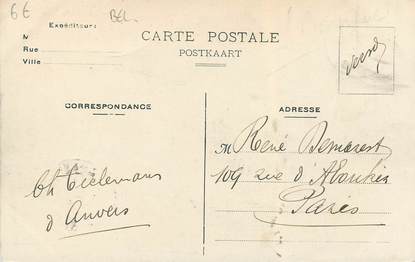 6€
BEL.
Expéditeur:
M
Rue
Ville
CARTE POSTALE
POSTKAART
verso
CORRESPONDANCE
ADRESSE
Ch Tielemans
d'Anvers
M René Demarest
109 rue d'Aboukir
Paris